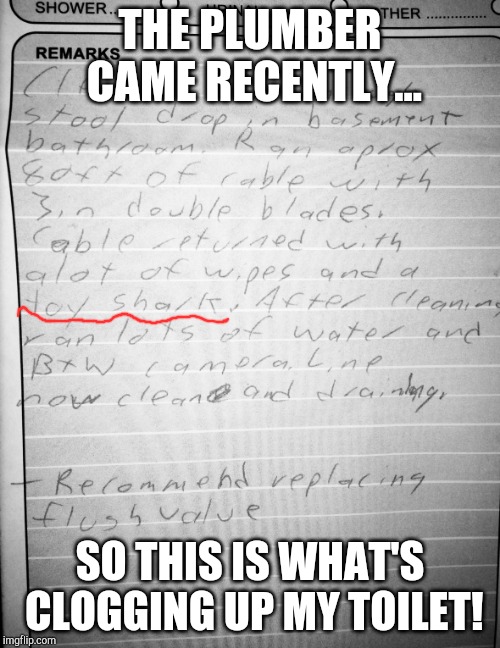 SHOWER..
THER ...............
THE PLUMBER
CAME RECENTLY...
REMARKS
stool drop in basement
bathroom. Ran aprox
80ft of cable with
3in double blades.
Cable returned with
alot of wipes and a
toy shark. After cleaning
ran lots of water and
B+W camera. Line
now clean and draining.
- Recommend replacing
flush value
SO THIS IS WHAT'S
CLOGGING UP MY TOILET!
imgflip.com